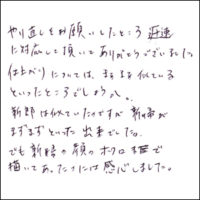 やり直しをお願いしたところ 迅速
に対応して頂いてありがとうございました。
仕上がりについては、まあまあ似ている
といったところでしょうか。
新郎は似ていたのですが 新婦が
まずまずといった出来でした。
でも新婦の顔のホクロ まで
描いてあったのには感心しました。